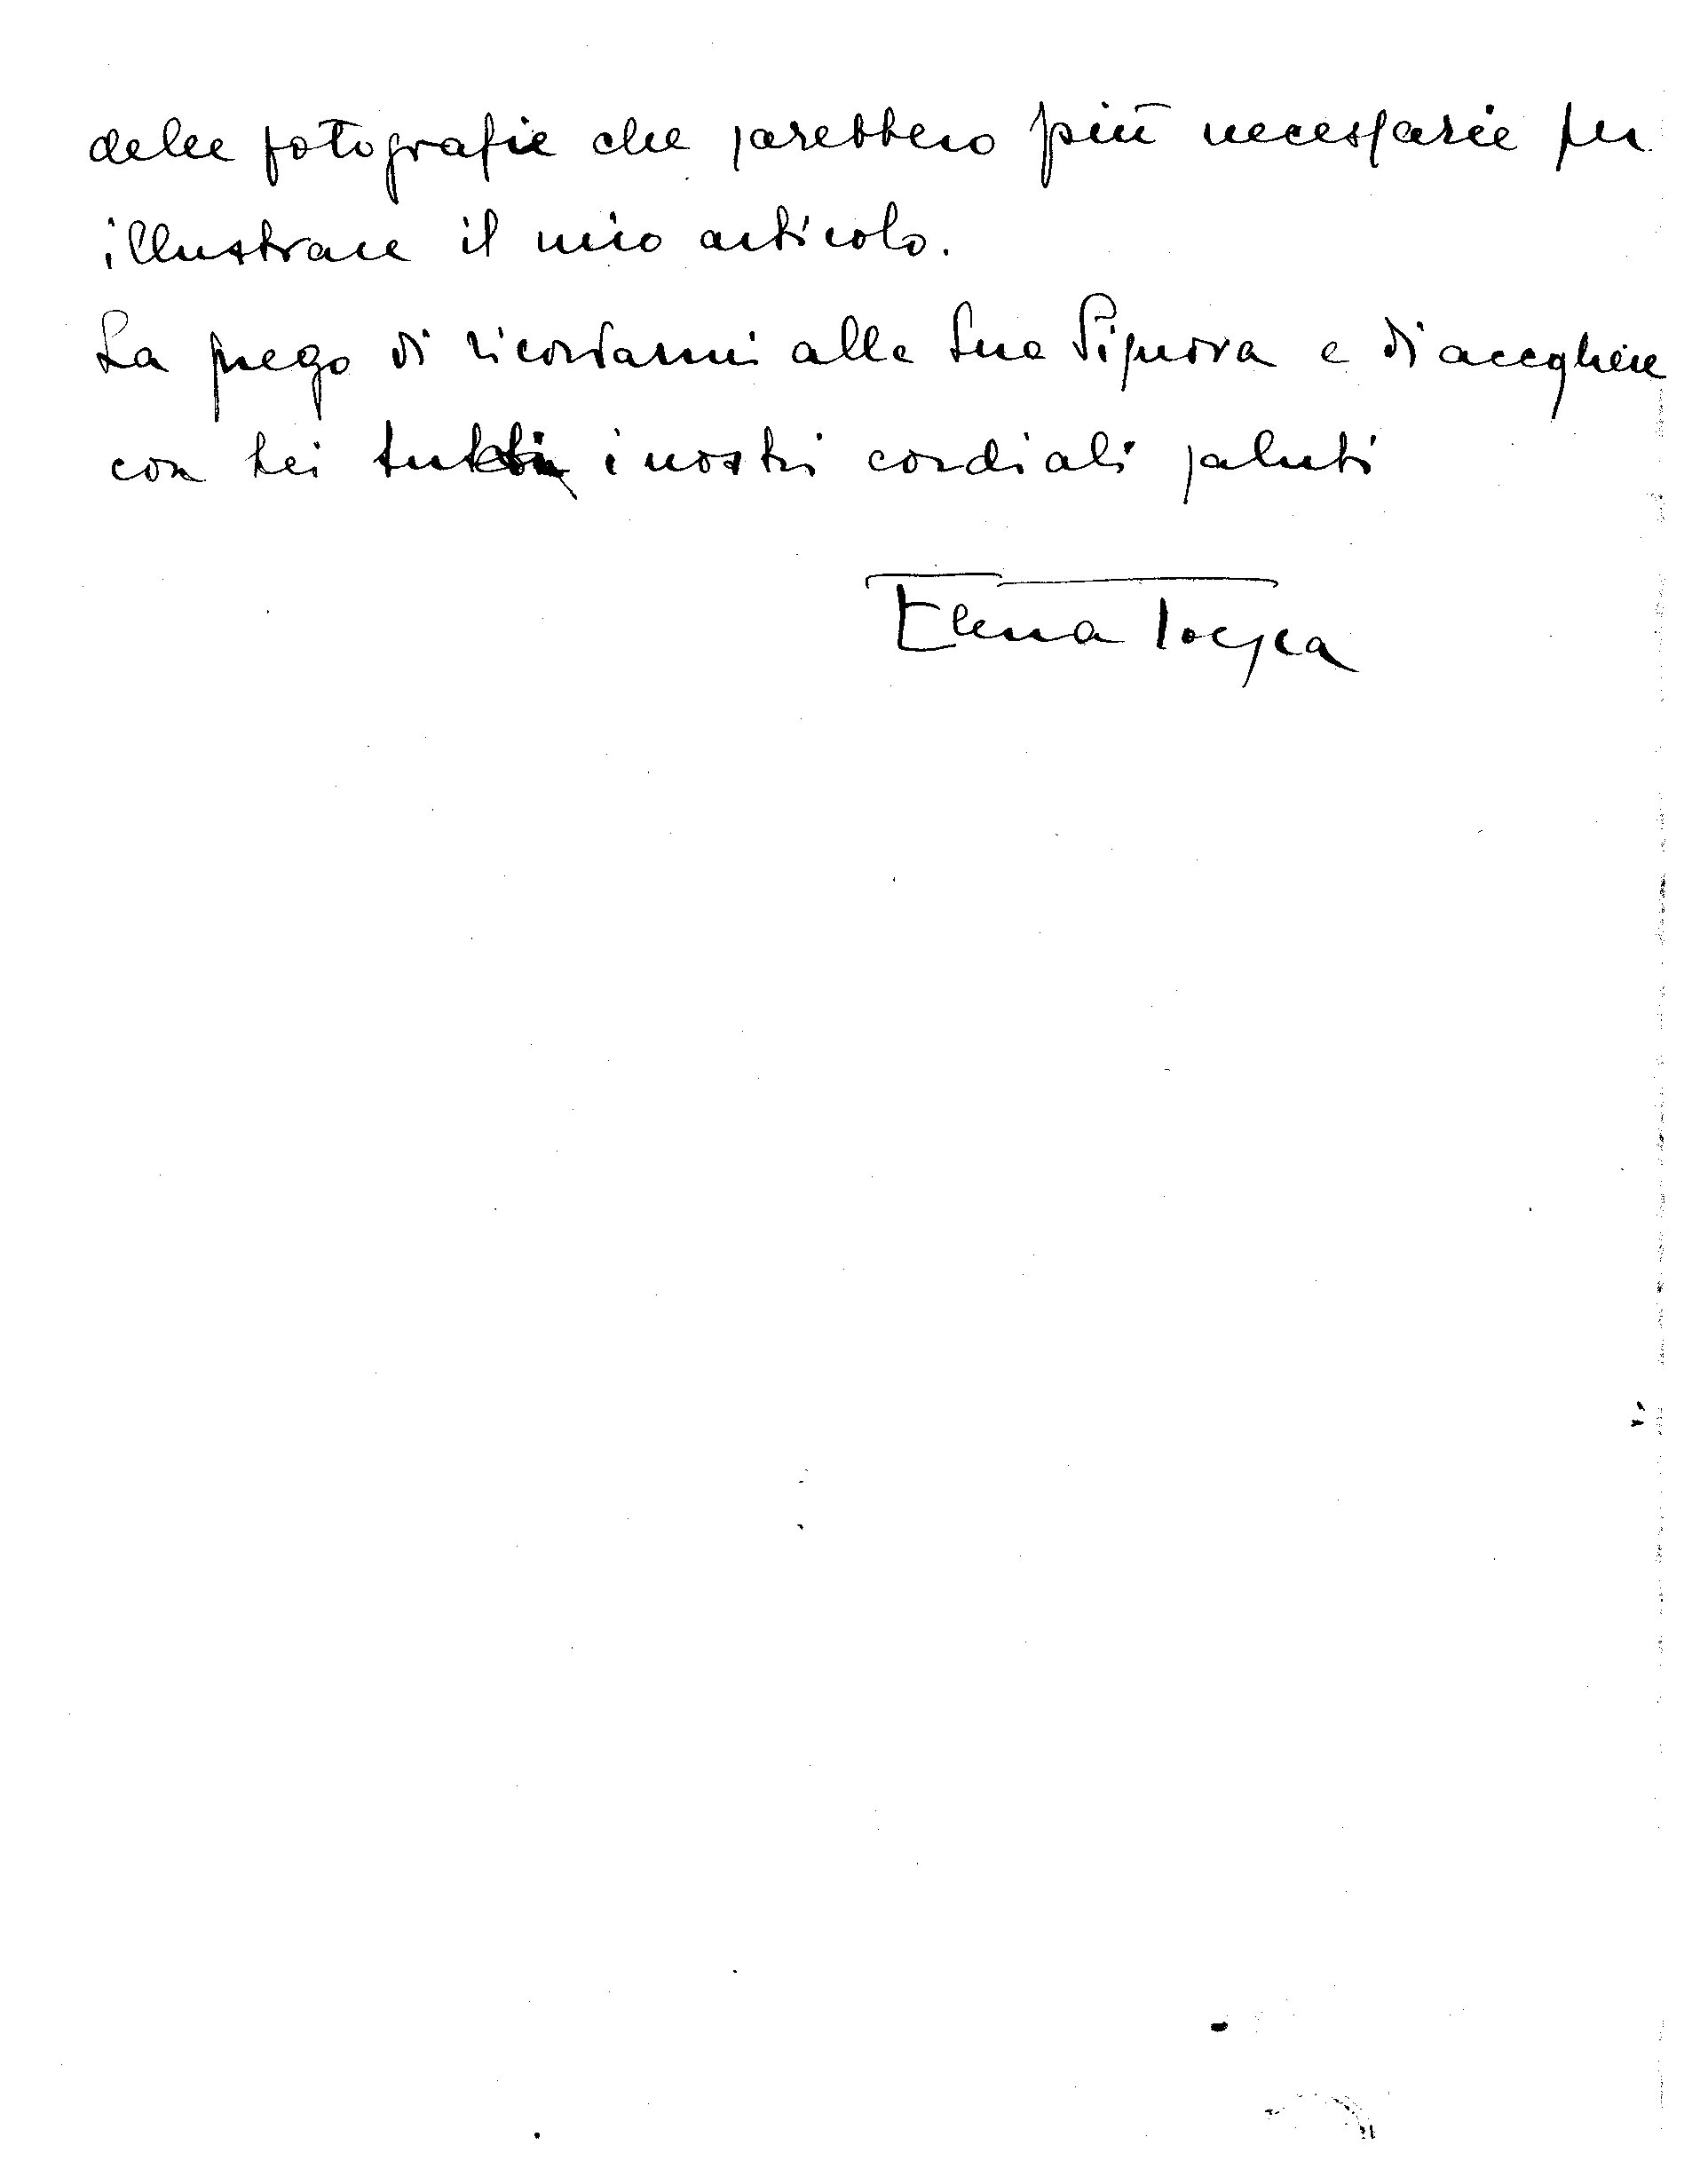 delle fotografie che sarebbero più necessarie per
illustrare il mio articolo.
La prego di ricordarmi alla Sua Signora e di accogliere
con Lei tutti i nostri cordiali saluti
Elena Toesca